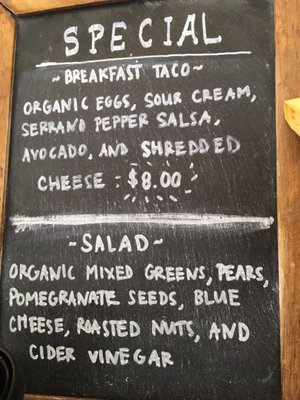 SPECIAL
~BREAKFAST TACO~
ORGANIC EGGS, SOUR CREAM,
SERRANO PEPPER SALSA,
AVOCADO, AND SHREDDED
CHEESE : $8.00
~SALAD~
ORGANIC MIXED GREENS, PEARS,
POMEGRANATE SEEDS, BLUE
CHEESE, ROASTED NUTS, AND
CIDER VINEGAR